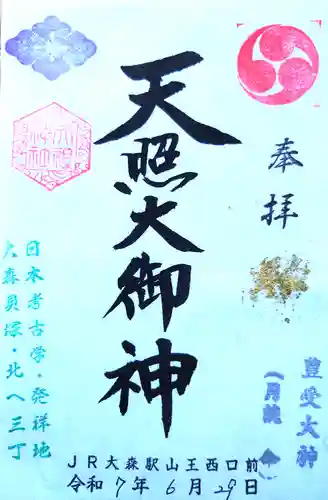 奉拝
天照大御神
日本考古学・発祥地
大森貝塚・北へ三丁
JR大森駅山王西口前
令和7年6月29日